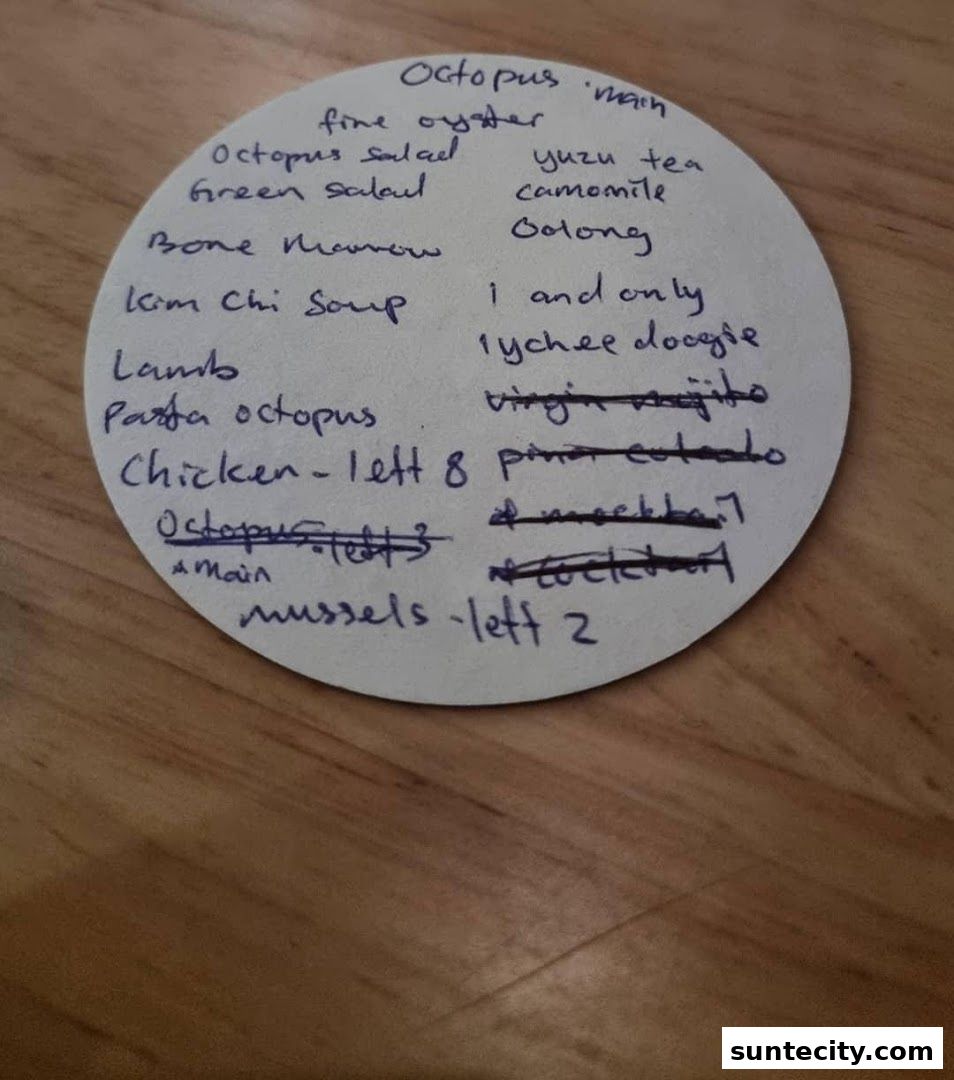 Octopus main
fine oyster
Octopus salad
Green salad
Bone Marrow
kim chi Soup
Lamb
Pasta octopus
Chicken - left 8
Octopus - left 3
main
mussels - left 2
yuzu tea
camomile
Oolong
1 and only
lychee doogie
virgin mojito
mocktail
cocktail
suntecity.com